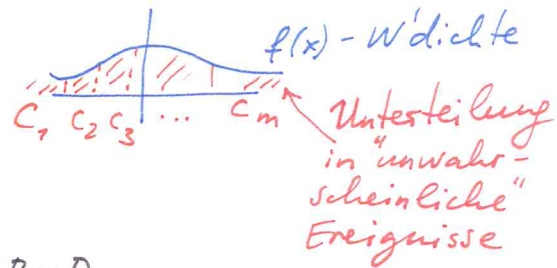 f(x) - W'dichte
C₁ C₂ C₃ ... Cₘ
Unterteilung
in "unwahr-
scheinliche"
Ereignisse